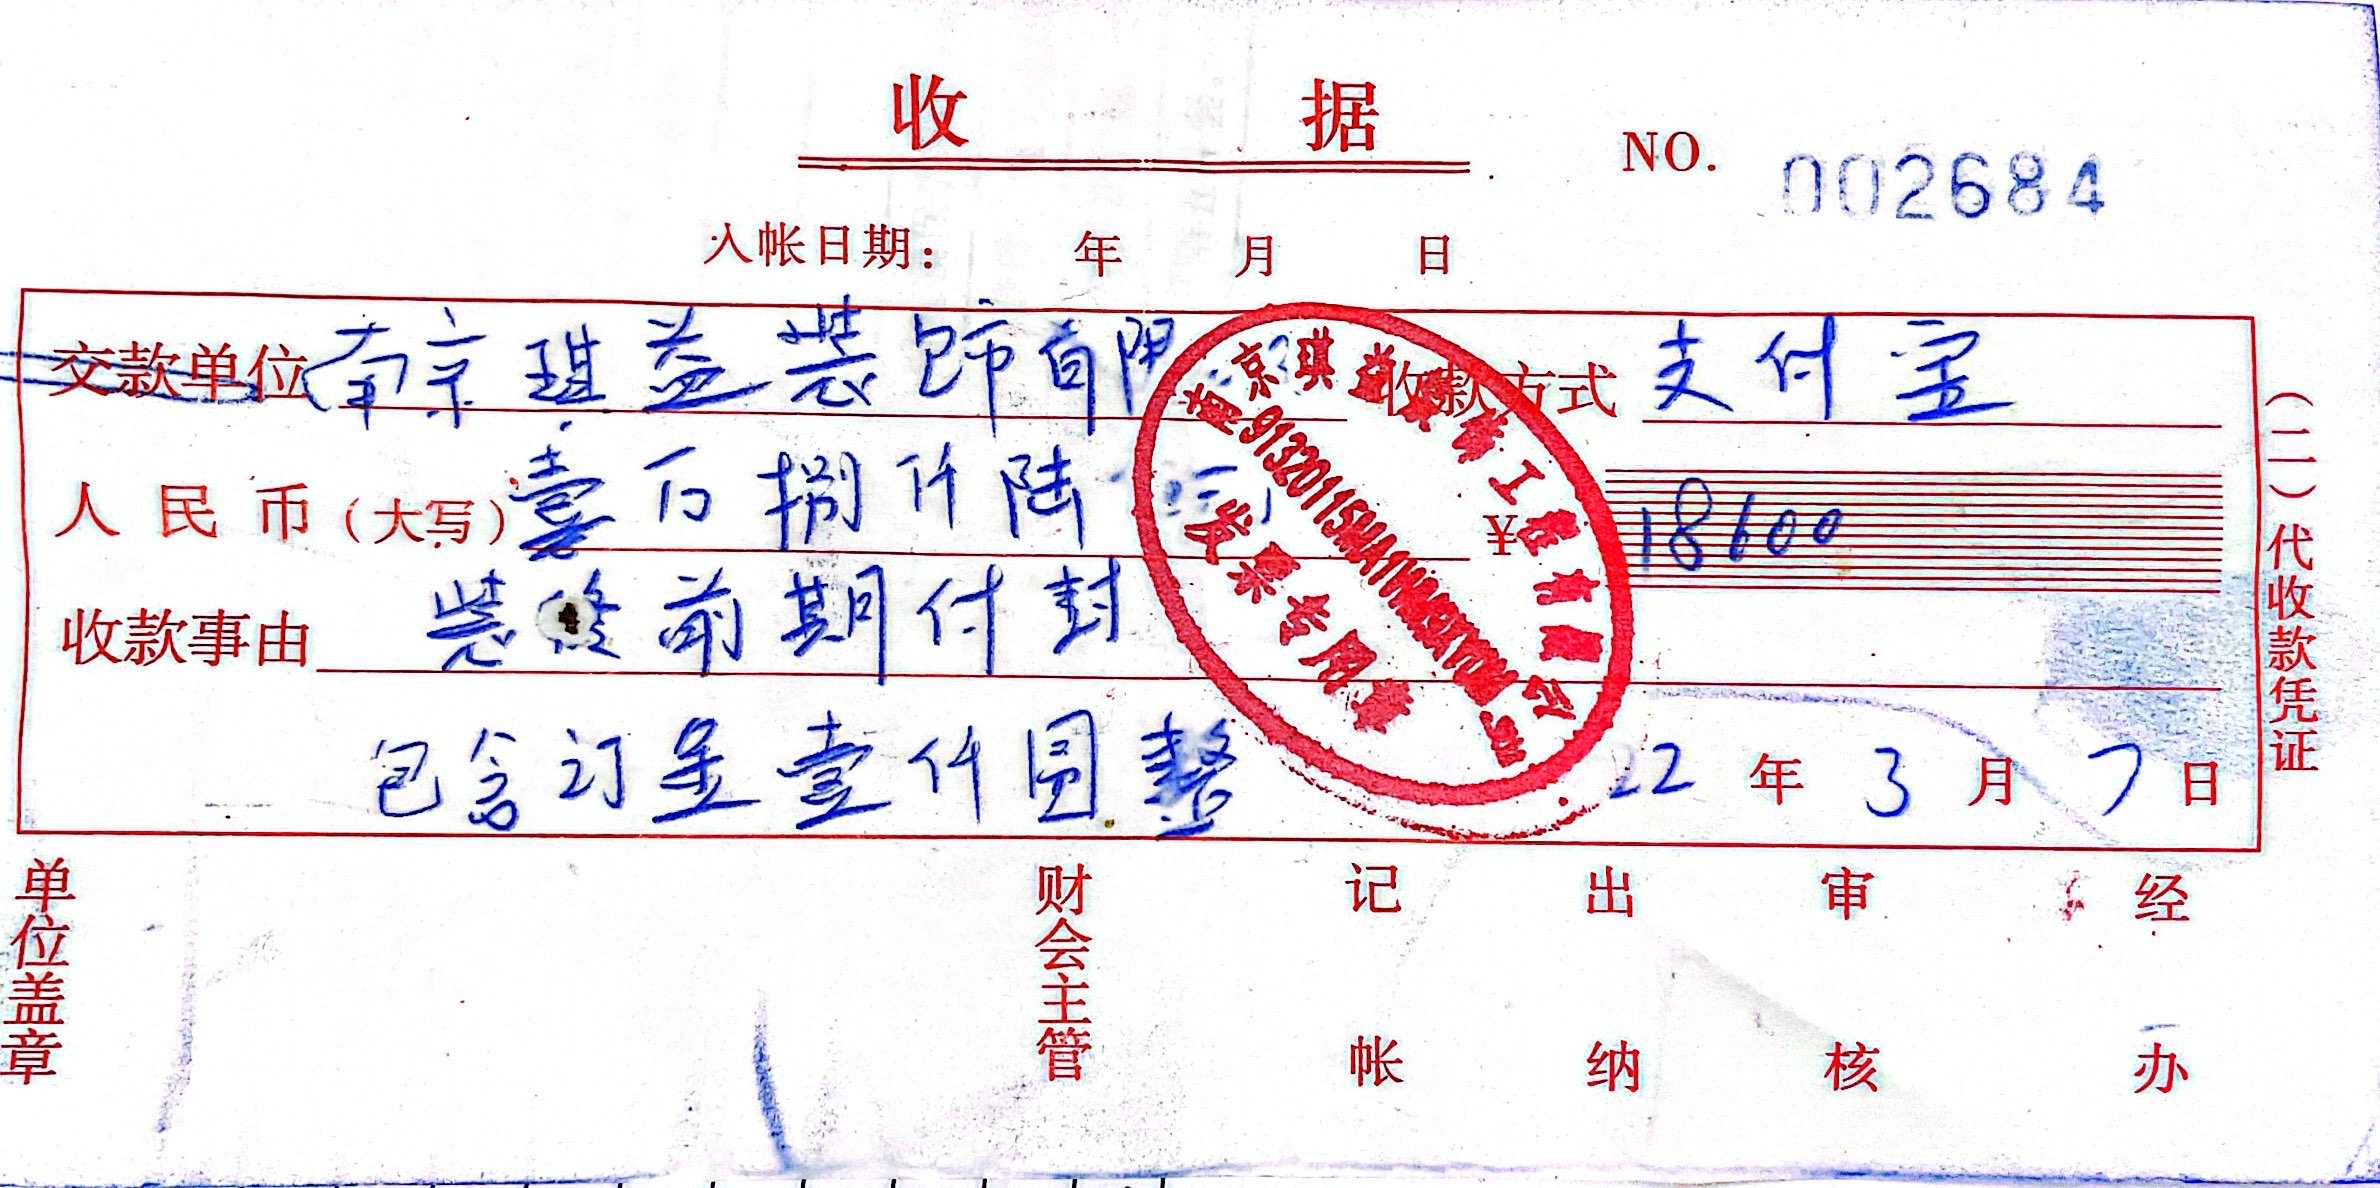 收 据
NO. 002684
入帐日期： 年 月 日
交款单位 南京琪益装饰有限 收款方式 支付宝
人民币（大写）壹万捌仟陆 ¥ 18600
收款事由 装修前期付封
包含订金壹仟圆整
22 年 3 月 7 日
（二）代收款凭证
南京琪益装饰工程有限公司
发票专用章
单位盖章 财会主管 记帐 出纳 审核 经办